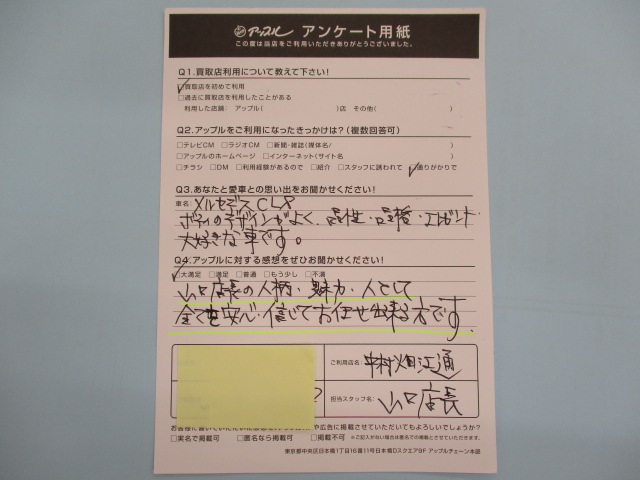 アップル アンケート用紙
この度は当店をご利用いただきありがとうございました。
Q1.買取店利用について教えて下さい!
☑買取店を初めて利用
□過去に買取店を利用したことがある
利用した店舗: アップル( )店 その他( )
Q2.アップルをご利用になったきっかけは?(複数回答可)
□テレビCM □ラジオCM □新聞・雑誌(媒体名/ )
□アップルのホームページ □インターネット(サイト名 )
□チラシ □DM □利用経験があるので □紹介 □スタッフに誘われて ☑通りがかりで
Q3.あなたと愛車との思い出をお聞かせください!
車名: メルセデスCLS
ボディのデザインがよく、品性・品格・エレガント
大好きな車です。
Q4.アップルに対する感想をぜひお聞かせください!
☑大満足 □満足 □普通 □もう少し □不満
山口店長の人柄・魅力・人として
全てを安心・信じてお任せ出来る方です.
ご利用店名: 中村畑江通
担当スタッフ名: 山口店長
や広告に掲載させていただいてもよろしいでしょうか?
□実名で掲載可 □匿名なら掲載可 □掲載不可 ※ご記入がない場合は匿名での掲載とさせていただきます。
東京都中央区日本橋1丁目16番11号日本橋Dスクエア8F アップルチェーン本部